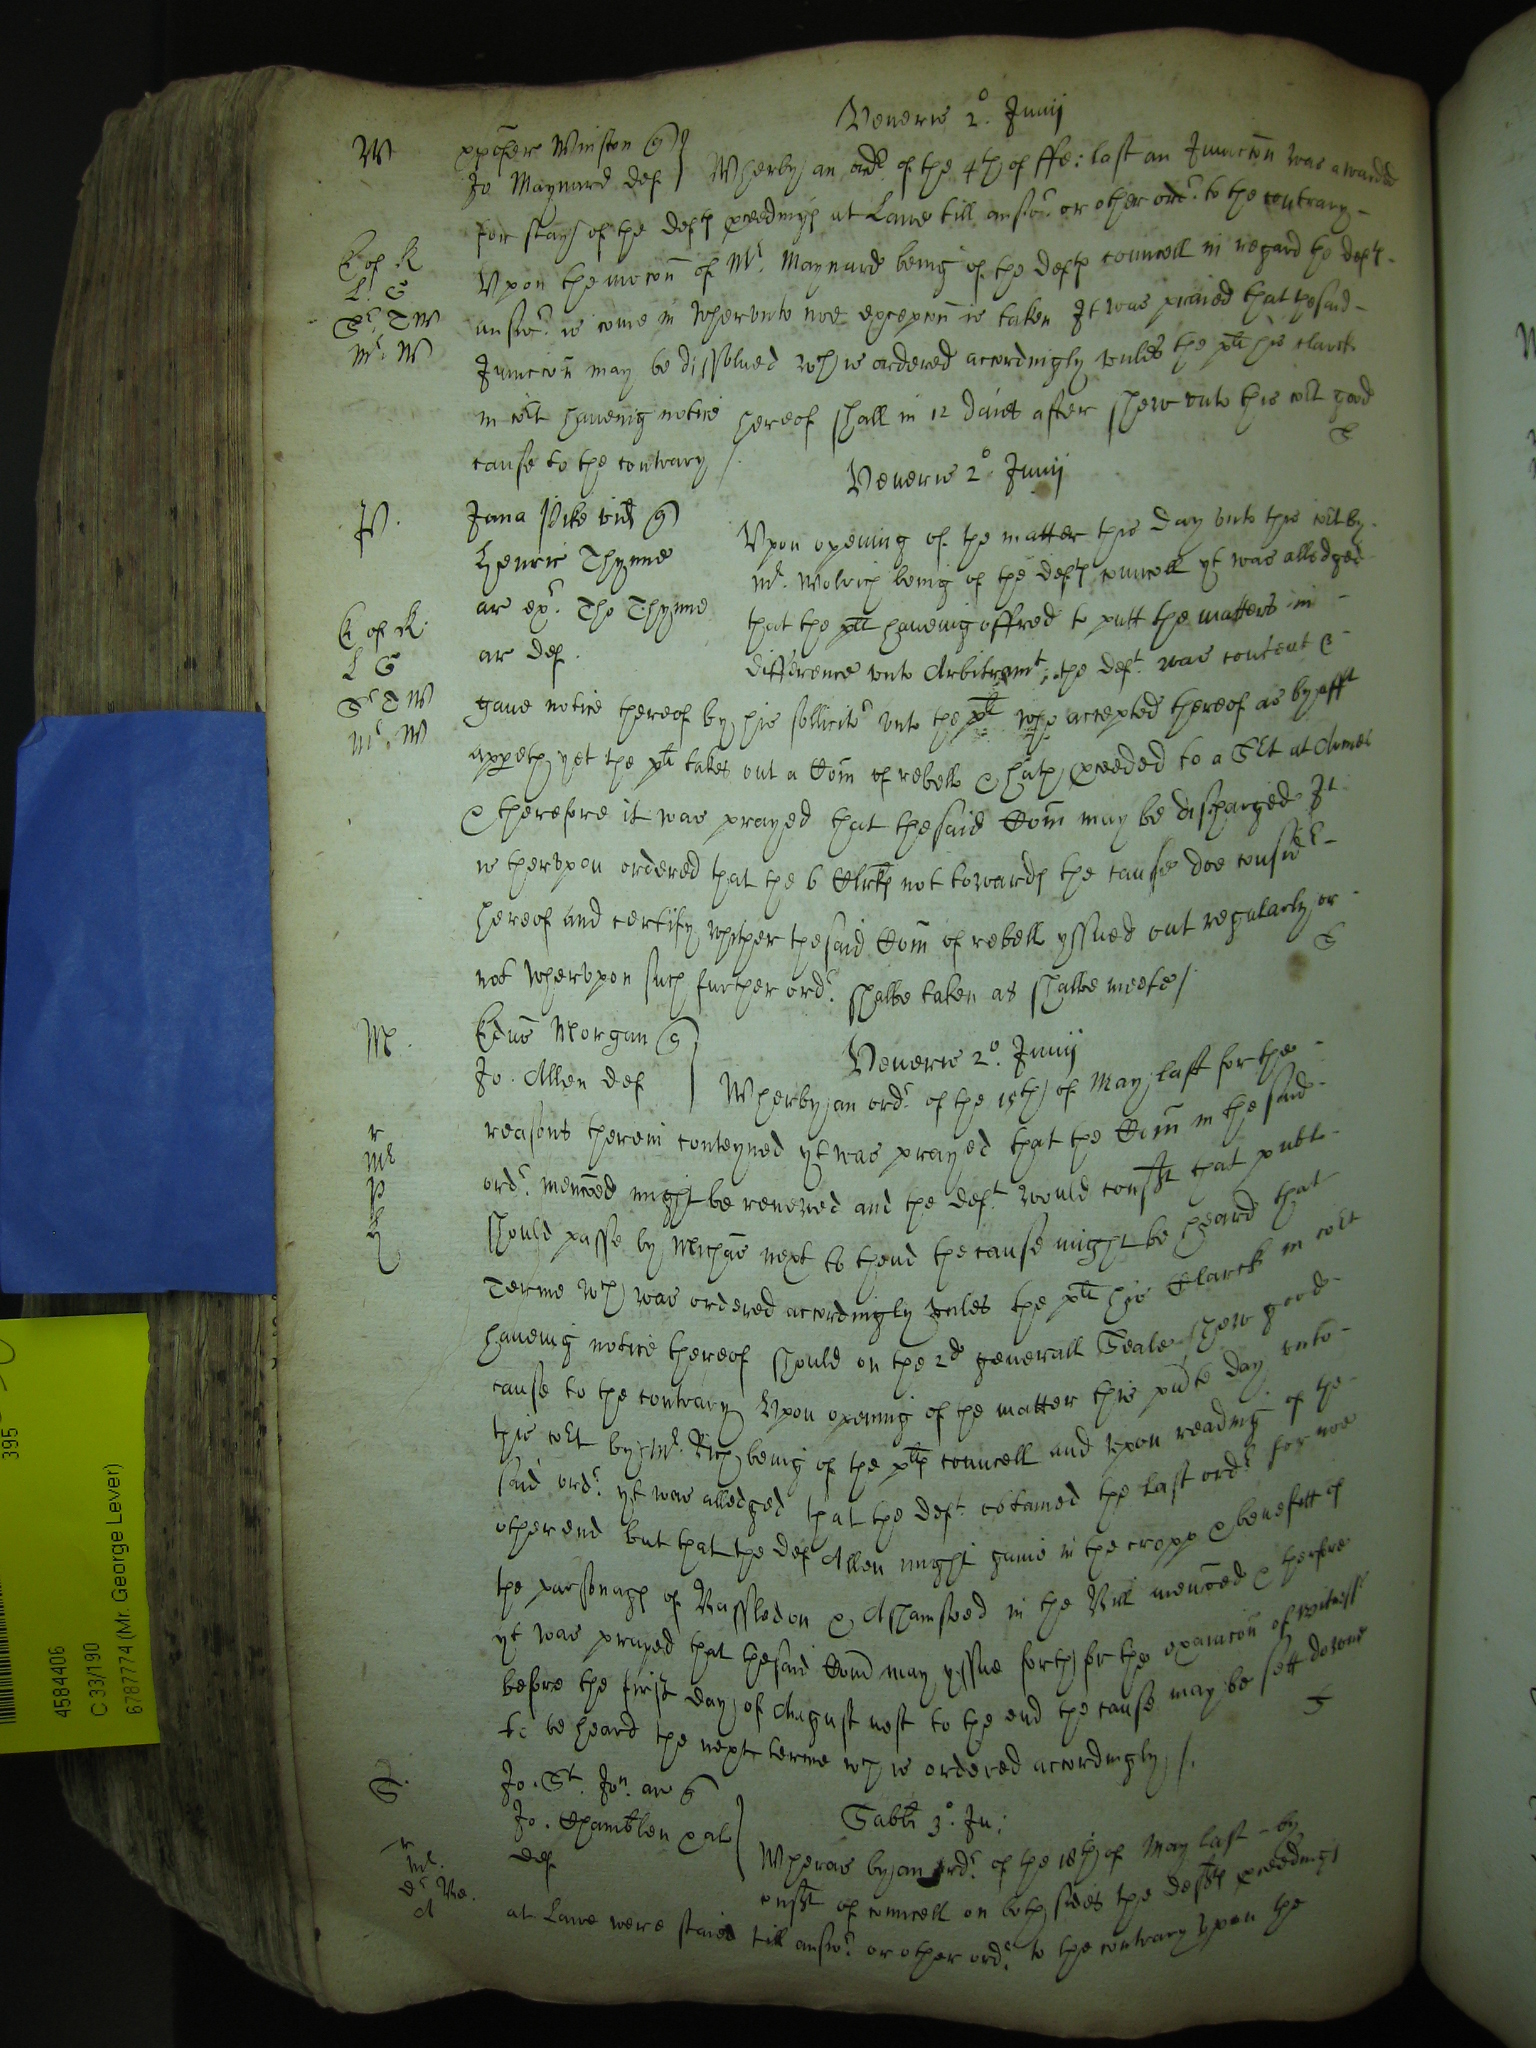 Veneris 2o. Junij
W
xpofer Winston q
Jo Maynard def
Wherby an ordr of the 4th of ffe: last an Junccon was awarded
for stay of the defts pceedings at Lawe till answr. or other ordr. to the contrary
E of K
L. G
Sr. T W
Mr. W
Vpon the mocon of Mr. Maynard being of the defts councell in regard the defts
answr. is come in whervnto noe excepcon is taken It was praied that thesaid
Junccon may be dissolued wch is ordered accordingly vnles the plt his clarck
in cort haueing notice hereof shall in 12 daies after shew vnto this cort good
cause to the contrary /
Veneris 2o Junij
P.
Jana Pike vid q
Henric Thynne
ar exr. Tho Thynne
ar def.
E of K.
L G
Sr T W
Mr. W
Vpon opening of the matter this day vnto this cort by
Mr. Wolrich being of the defts councell yt was alledged
that the plt haueing offred to putt the matters in
difference vnto Arbitremt. the deft. was content &
gaue notice thereof by his sollicitor vnto the plt who accepted thereof as by afft
appeth, yet the plt takes out a Com of rebell & hath pceeded to a Sert at Armes
& therefore it was prayed that thesaid Com may be discharged It
is thervpon ordered that the 6 Clrks not towards the cause doe consider
hereof and certify whither thesaid Com of rebell yssued out regularly or
not wherupon such further ordr. shalbe taken as shalbe meete /
M.
Edus Morgan q
Jo. Allen def
Veneris 2o. Junij
Wherby an ordr. of the 18th of May last for the
r
Mr
P
h
reasons therein conteyned yt was prayed that the Com in the said
ordr. menconed might be renewed and the deft. would consent that publ
should passe by Michas next to thend the cause might be heard that
Terme wch was ordered accordingly vnles the plt his Clarck in cort
haueing notice thereof should on the 2d generall Seale shew good
cause to the contrary Vpon opening of the matter this pnte day vnto
this cort by Mr. Rich being of the plts councell and vpon reading of the
said ordr. yt was alledged that the deft. obtained the last ordr for noe
other end but that the def Allen might gaine in the cropp & benefitt of
the parsonage of Bassledon & Ashamsteed in the Bill menconed & therfore
yt was prayed that thesaid Com may yssue forth for the examcon of witness
before the first day of August next to the end the cause may be sett downe
to be heard the next terme wch is ordered accordingly /.
S.
Jo. St. Jon. ar q
Jo. Chamblen & al
def
Sabti 3o. Ju:
r
Mr.
d
Wheras by an ordr. of the 18th of May last by
consent of councell on both sides the defts pceedings
at Lawe were staied till answr. or other ordr. to the contrary Vpon the
395
4584406
C 33/190
6787774 (Mr. George Lever)